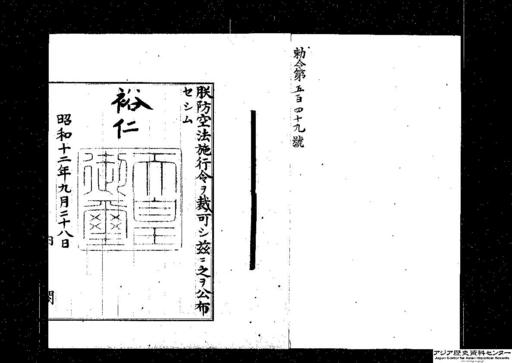 勅令第五百四十九號
朕防空法施行令ヲ裁可シ茲ニ之ヲ公布
セシム
裕仁
天皇御璽
昭和十二年九月二十八日
アジア歴史資料センター
Japan Center for Asian Historical Records